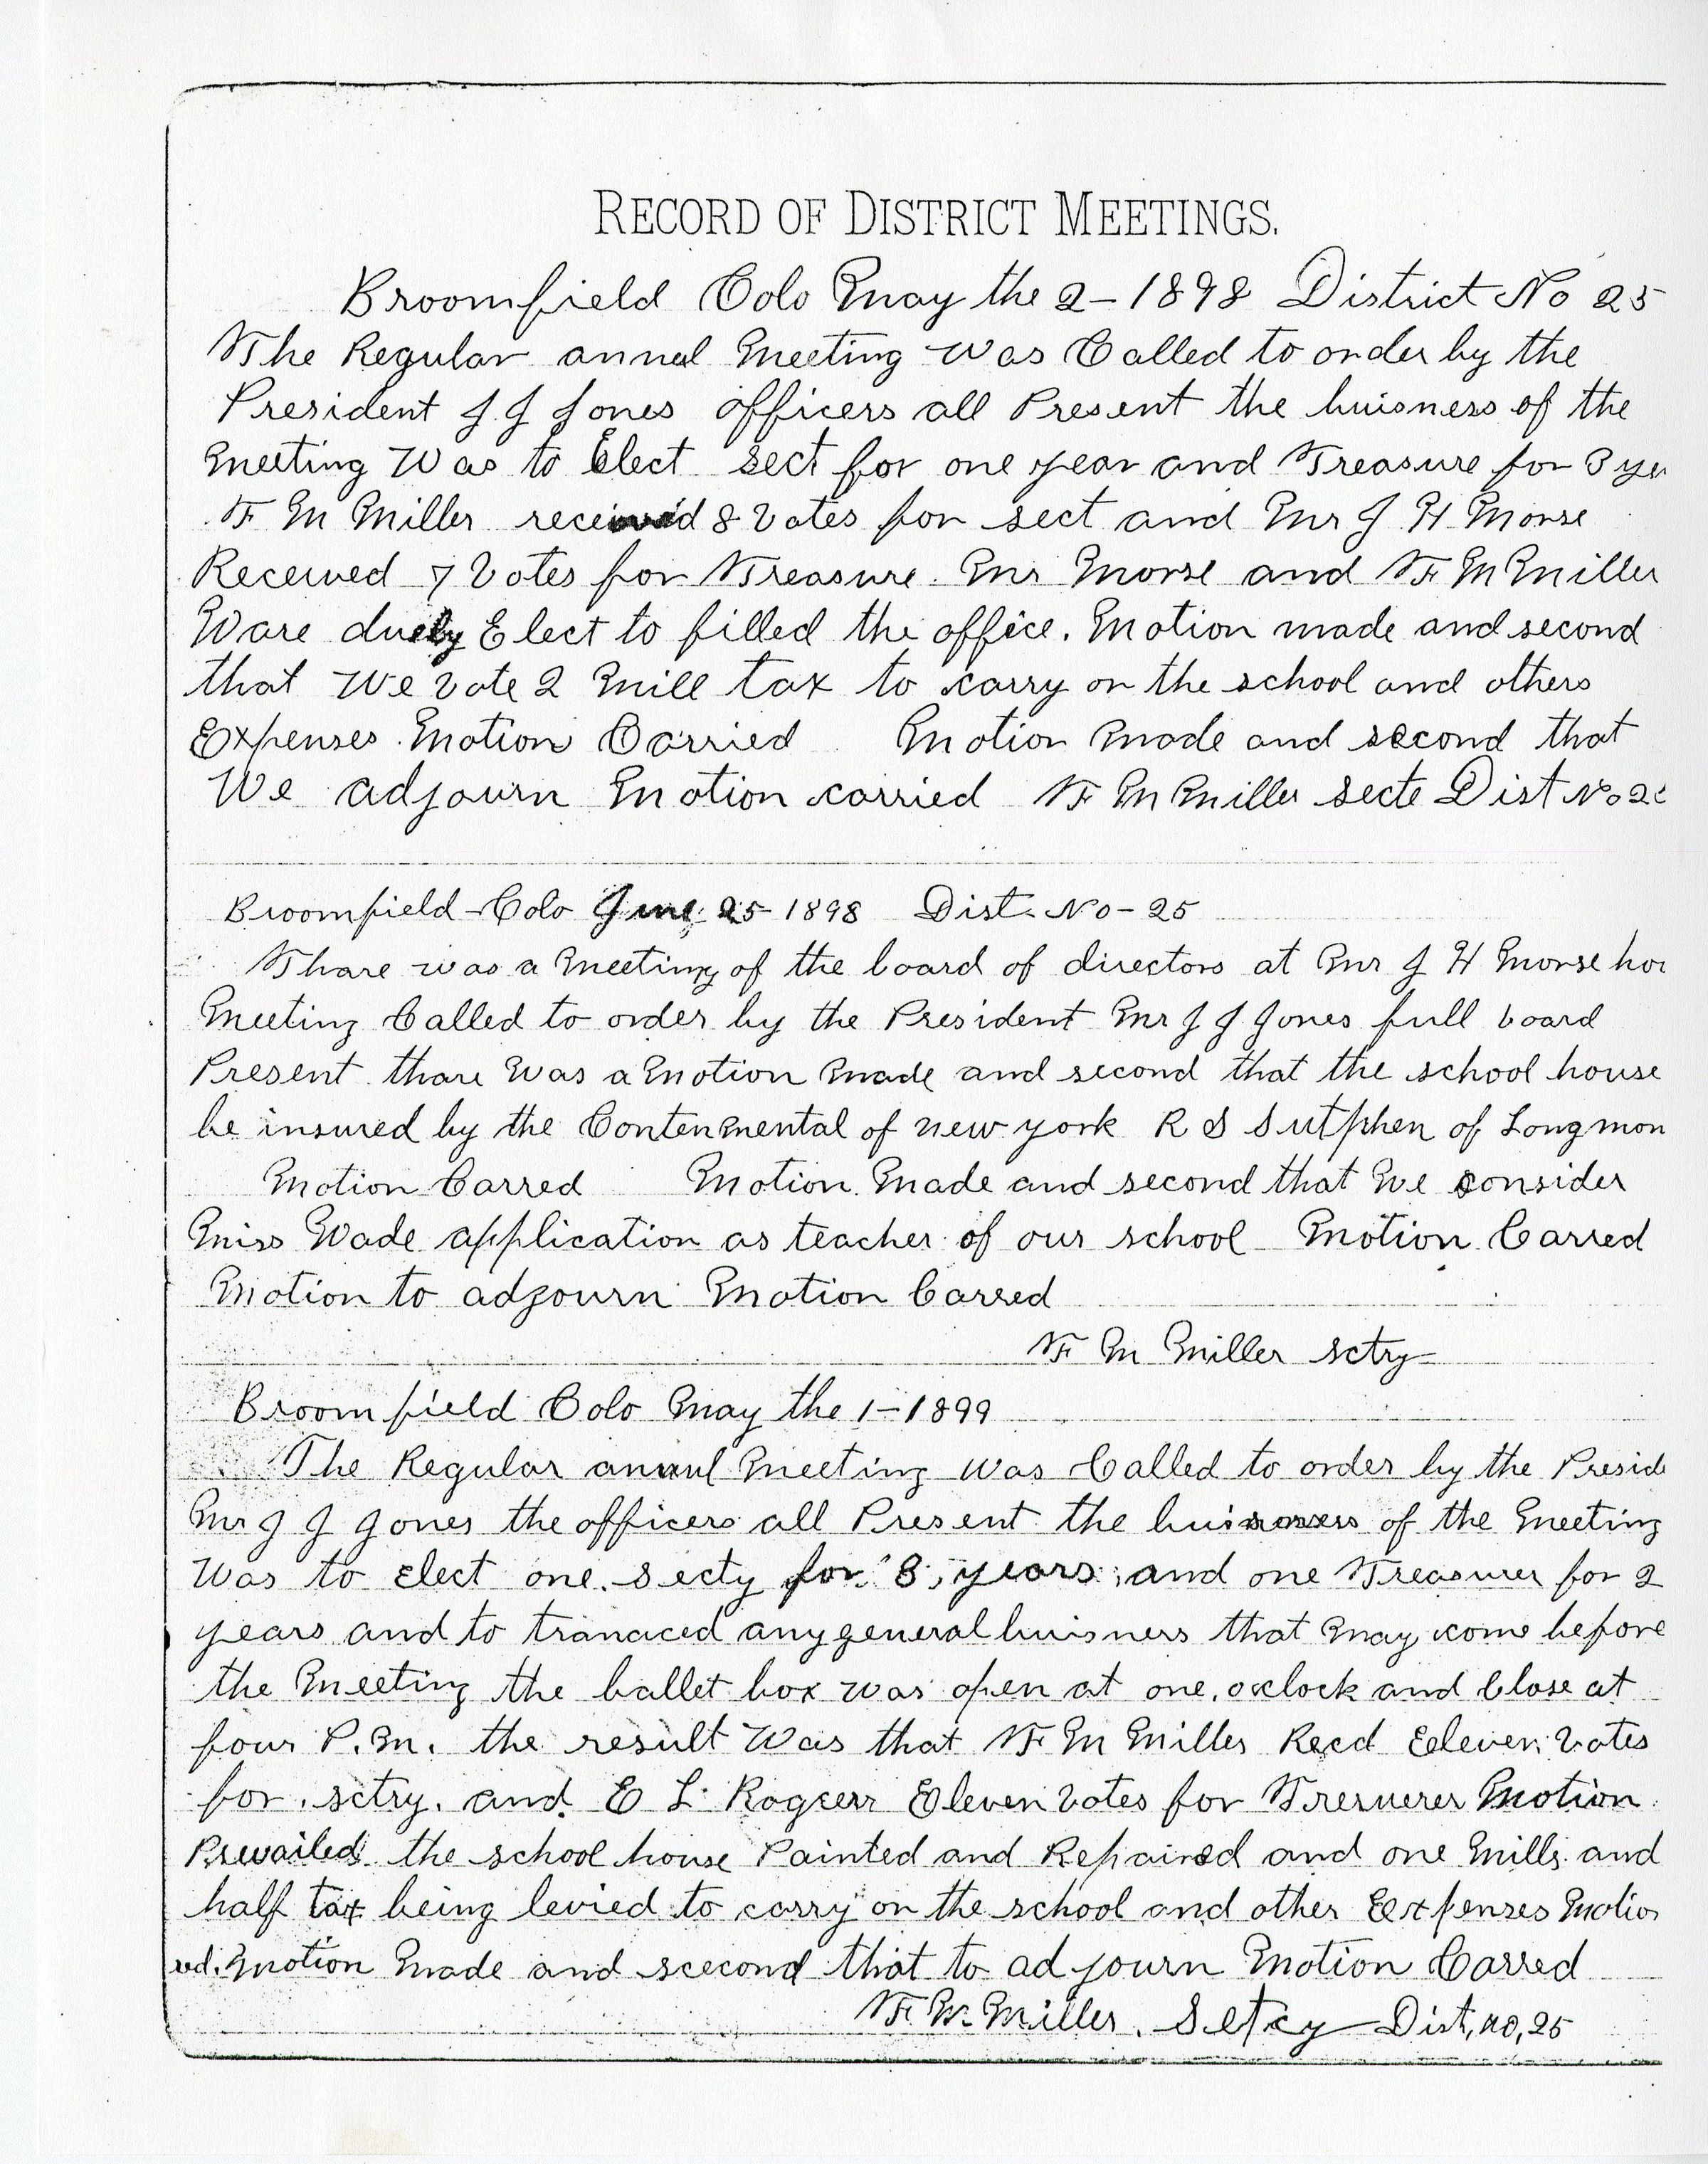 RECORD OF DISTRICT MEETINGS.
Broomfield Colo May the 2-1898 District No 25
The Regular annul Meeting was Called to order by the
President J J Jones officers all Present the buisness of the
Meeting Was to Elect sect for one year and Treasure for 3
F M Miller received 8 Votes for sect and Mr J H Morse
Received 7 Votes for Treasure. Mr Morse and F M Miller
Ware duely Elect to filled the office. Motion made and second
that We Vote 2 Mill tax to carry on the school and others
Expenses. Motion Carried Motion Made and second that
We adjourn Motion carried F M Miller secte Dist No
Broomfield-Colo June 25-1898 Dist. No-25
Thare was a Meeting of the board of directors at Mr J H Morse
Meeting Called to order by the President Mr J J Jones full board
Present thare Was a Motion Made and second that the school house
be insured by the Contenmental of new york R S Sutphen of Longmon
Motion Carred Motion Made and second that We consider
Miss Wade application as teacher of our school Motion Carred
Motion to adjourn Motion Carred
F M Miller sctry
Broomfield Colo May the 1-1899
The Regular annul Meeting Was Called to order by the Presid
Mr J J Jones the officers all Present the of the Meeting
Was to Elect one secty for 3 years and one Treasurer for 2
years and to tranaced any general buisness that May come before
the Meeting the ballet box was open at one, oclock and Close at
four P.M. the result Was that F M Miller Recd Eeleven Votes
for sctry. and E L Eleven Votes for Motion
Prevailed the school house Painted and Repaired and one Mills and
half tax being levied to carry on the school and other Eexpenses Motion
ed. Motion Made and scecond that to adjourn Motion Carred
F. M. Miller. Setcy Dist, no, 25